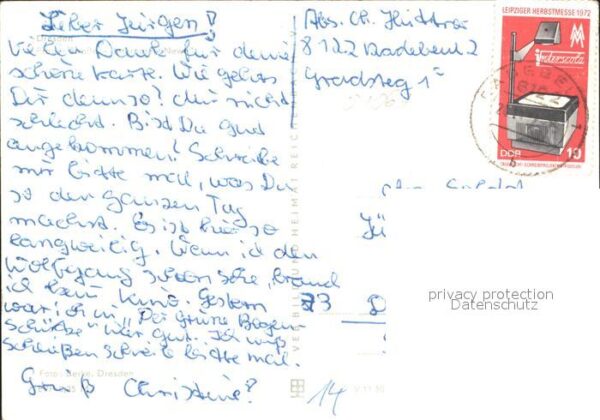 Lieber Jürgen!
Vielen Dank für deine
schöne Karte. Wie geht es
Dir denn so? Mir nicht
schlecht. Bist Du gut
angekommen? Schreibe
mir bitte mal, was Du
so den ganzen Tag
machst. Es ist hier so
langweilig. Wenn ich den
Wolfgang schon sehe, brauch
ich kein Kino. Gestern
war ich in "Der grüne Bogen-
schütze" war gut. Ich muß
schließen schreibe bitte mal.
Gruß Christine!
Foto: Dresden
Abs. Ch.
8122 Radebeul 2
Gradsteg 1
LEIPZIGER HERBSTMESSE 1972
MM
Polerscola
DDR 10
VERLAG BILD UND HEIMAT REICHENBACH
Jü
73 D
privacy protection
Datenschutz
14